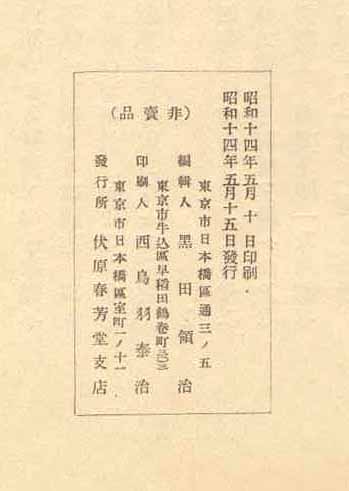 昭和十四年五月十日印刷
昭和十四年五月十五日發行
(非賣品)
東京市日本橋區通三ノ五
編輯人 黑田領治
東京市牛込區早稻田鶴卷町
印刷人 西鳥羽泰治
東京市日本橋區室町一ノ十一
發行所 伏原春芳堂支店